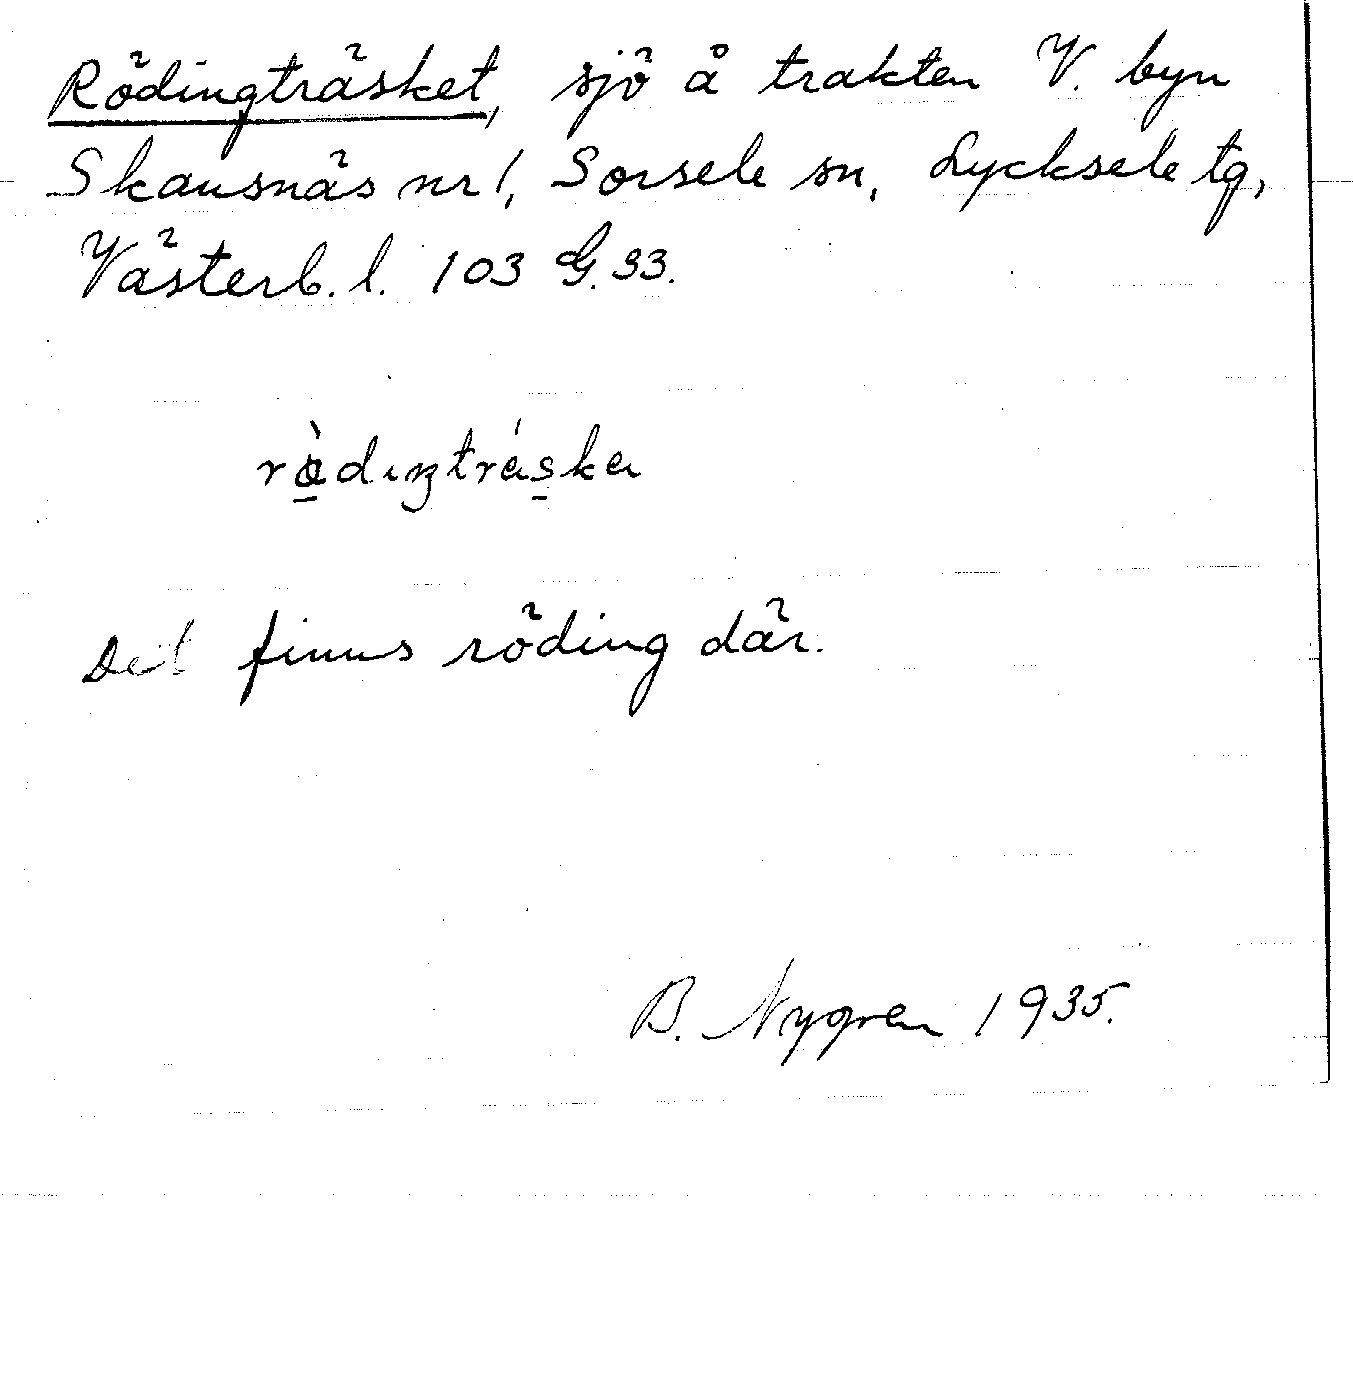 Rödingträsket, sjö å trakten V. byn
Skansnäs nr 1, Sorsele sn, Lycksele tg,
Västerb. l. 103 G. 33.
rø̀dıŋtrǽska
Det finns röding där.
B. Nygren 1935.